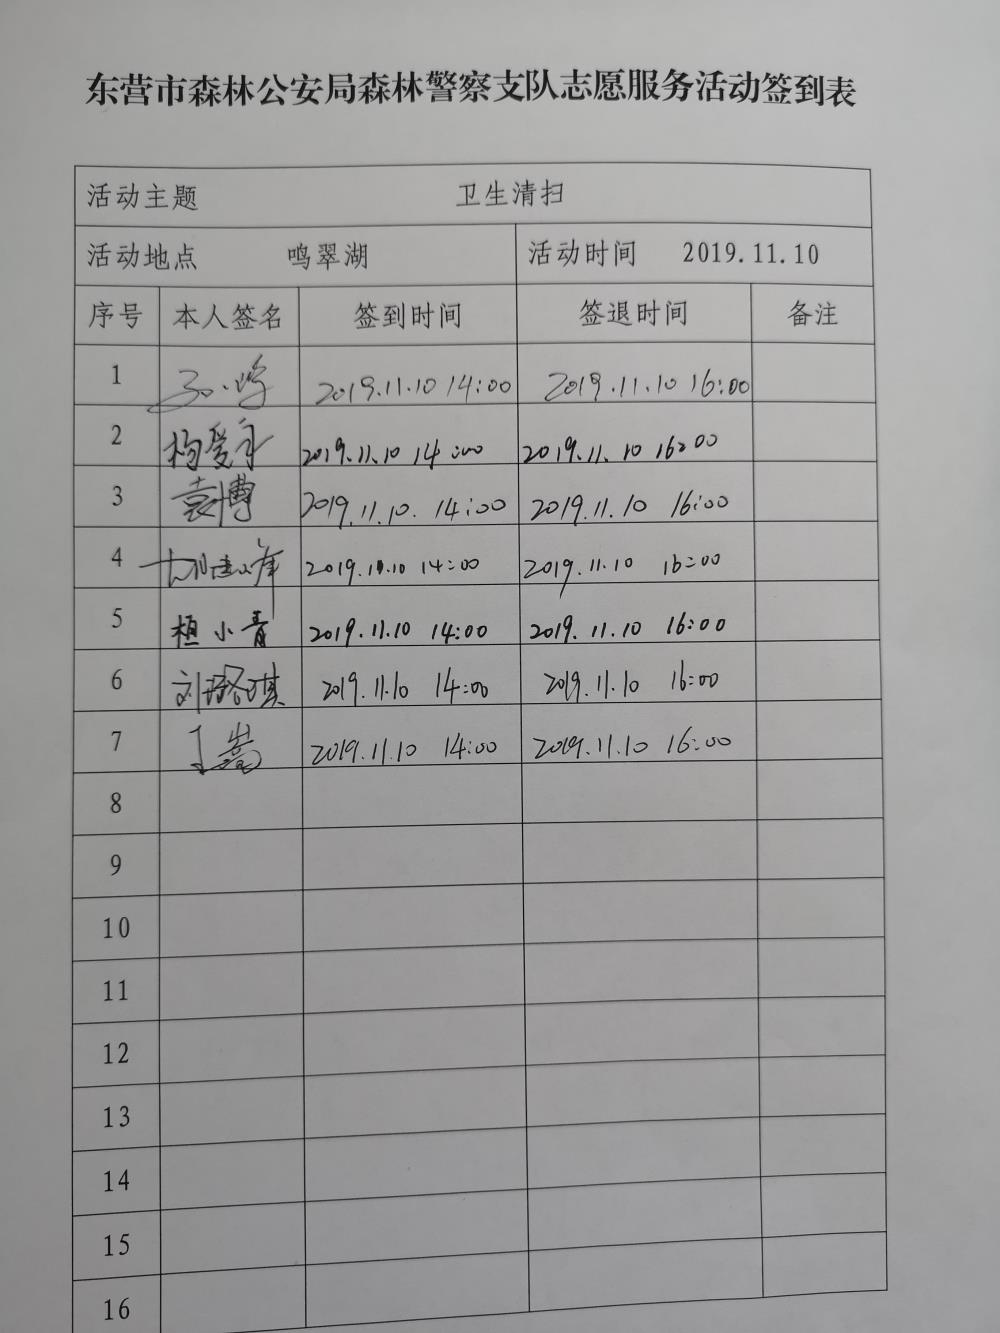 东营市森林公安局森林警察支队志愿服务活动签到表
活动主题 卫生清扫
活动地点 鸣翠湖 活动时间 2019.11.10
序号 本人签名 签到时间 签退时间 备注
1 2019.11.10 14:00 2019.11.10 16:00
2 2019.11.10 14:00 2019.11.10 16:00
3 袁博 2019.11.10. 14:00 2019.11.10 16:00
4 2019.11.10 14:00 2019.11.10 16:00
5 小青 2019.11.10 14:00 2019.11.10 16:00
6 刘璐琪 2019.11.10 14:00 2019.11.10 16:00
7 丁嵩 2019.11.10 14:00 2019.11.10 16:00
8
9
10
11
12
13
14
15
16